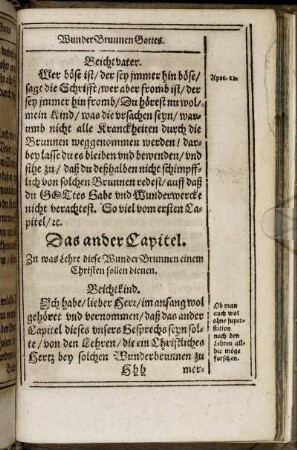 WunderBrunnen Gottes.
Beichtvater.
Wer böse ist/ der sey immer hin böse/
sagt die Schrifft/ wer aber fromb ist/ der
sey jmmer hin fromb/ Du hörest nu wol/
mein Kind/ was die ursachen seyn/ war-
umb nicht alle Kranckheiten durch die
Brunnen weggenommen werden/ dar-
bey lasse du es bleiben und bewenden/ und
sihe zu/ daß du deßhalben nicht schimpff-
lich von solchen Brunnen redest/ auff daß
du GOttes Gabe vnd Wunderwercke
nicht verachtest. So viel vom ersten Ca-
pitel/ ꝛc.
Apoc. 22.
Das ander Capitel.
Zu was Lehre diese WunderBrunnen einem
Christen sollen dienen.
Beichtkind.
Ich habe/ lieber Herr/ im anfang wol
gehöret vnd vernommen/ daß das ander
Capitel dieses vnsers Gesprechs seyn sol-
te/ von den Lehren/ die ein Christliches
Hertz bey solchen Wunderbrunnen zu
Ob man
auch wol
ohne super-
stition
nach den
Lehren all-
hie möge
forschen.
Hhh
mer-